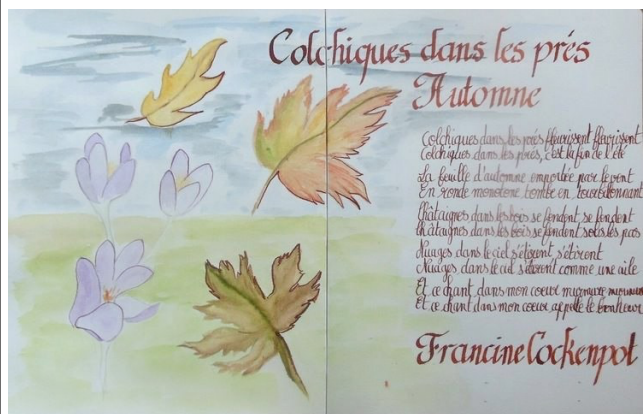 Colchiques dans les prés
Automne
Colchiques dans les prés fleurissent fleurissent
Colchiques dans les prés, c'est la fin de l'été
La feuille d'automne emportée par le vent
En ronde monotone tombe en tourbillonnant
Châtaignes dans les bois se fendent se fendent
Châtaignes dans les bois se fendent sous les pas
Nuages dans le ciel s'étirent s'étirent
Nuages dans le ciel s'étirent comme une aile
Et ce chant dans mon coeur murmure murmure
Et ce chant dans mon coeur appelle le bonheur
Francine Cockenpot